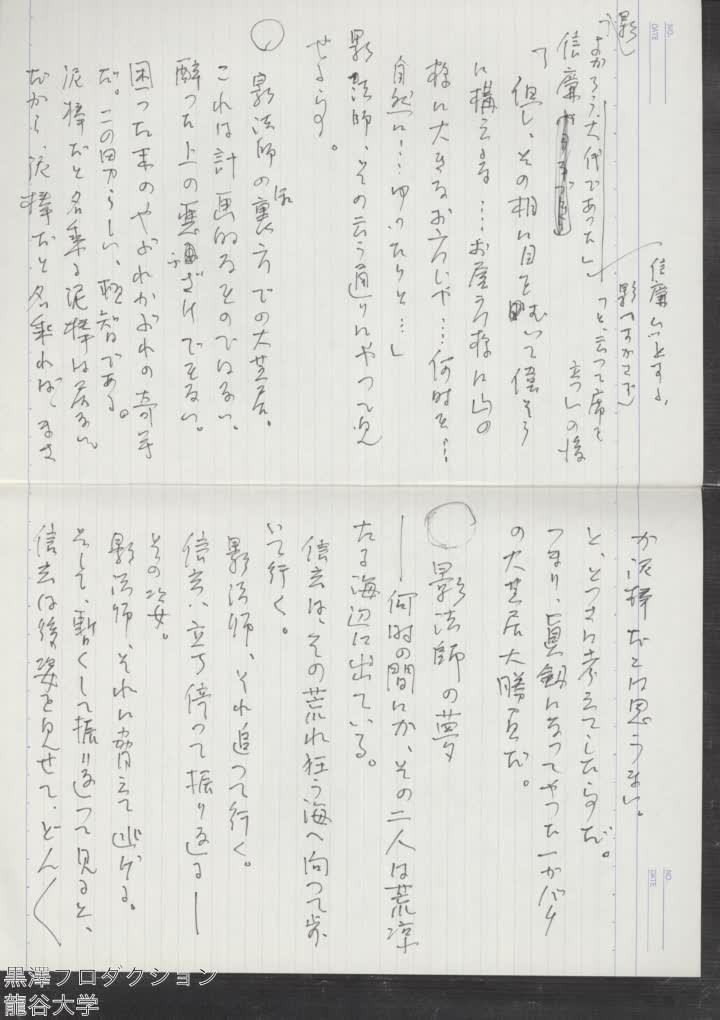 影し
うまかろう、大代であった」
信廉
信廉ハッとする。
つと、云って席を
立つ、その後
「但し、その相に目を□むいて偉そう
に構えるな…お屋方様は山の
様に大きなお方じゃ…何時も…
自然に…ゆったりと…」
影法師、その云う通りにやって見
せようとする。
影法師の裏方での大芝居。
これは計画的なものではない、
酔った上の悪ふざけでもない。
困った末のやぶれかぶれの奇手
だ。この男らしい、頓智である。
泥棒だと名乗る泥棒は居ない。
だから、泥棒だと名乗れば、まさ
か泥棒だとは思うまい。
と、とっさに考えてしたらすだ。
つまり、真剣になってやった一かバチ
の大芝居大勝負だ。
影法師の夢
―何時の間にか、その二人は荒涼
たる海辺に出ている。
信玄は、その荒れ狂う海へ向って歩
いて行く。
影法師、それ追って行く。
信玄ハ立ち停って振り返る―
その姿。
影法師、それに脅えて逃げる。
そして、暫くして振り返って見ると、
信玄は後姿を見せて、どん〱
NO.
DATE
NO.
DATE
黒澤プロダクション
龍谷大学